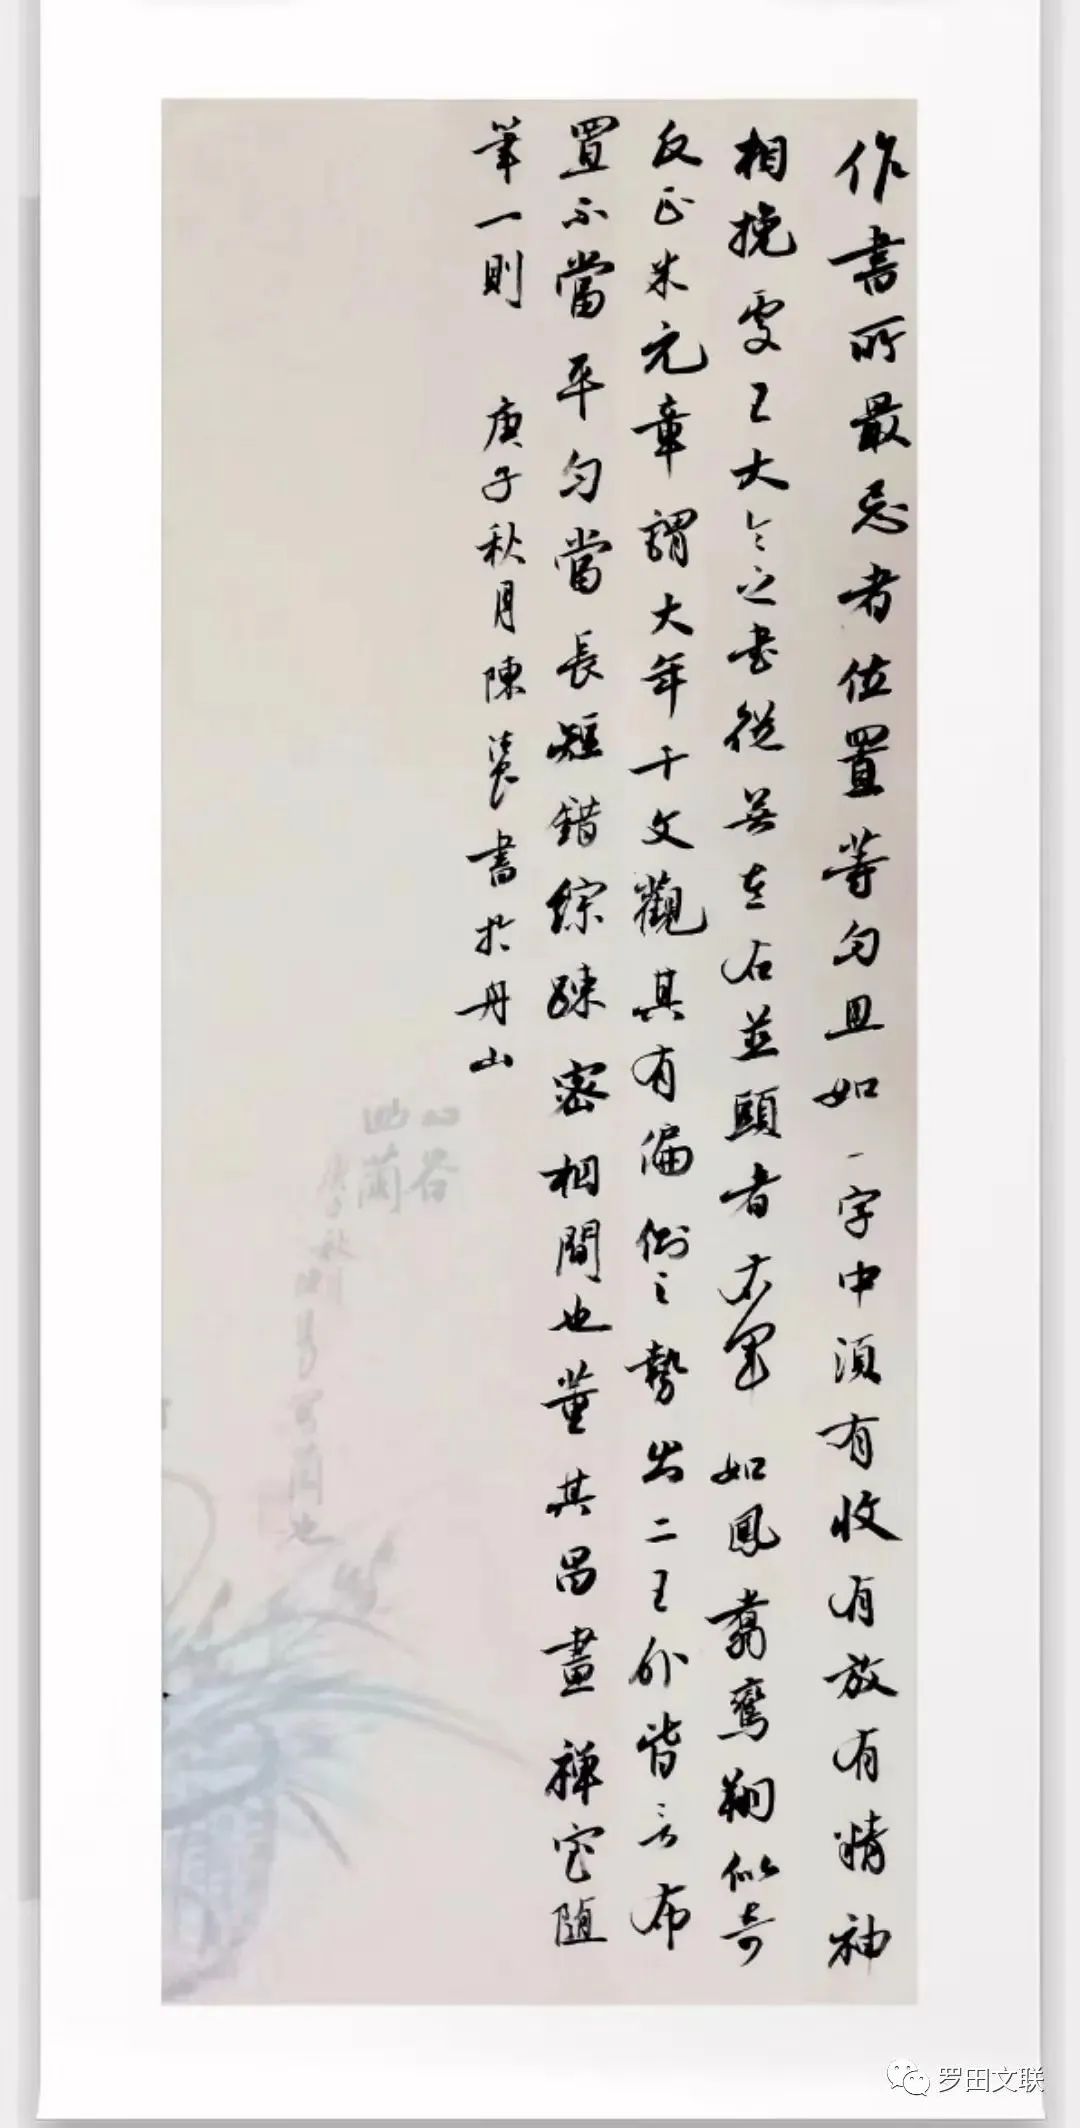 作書所最忌者位置等勻且如一字中須有收有放有精神
相挽處王大令之書從無左右並頭者右軍如鳳翥鸞翔似奇
反正米元章謂大年千文觀其有偏側之勢出二王外皆言布
置不當平勻當長短錯綜疎密相間也董其昌畫禪室隨
筆一則 庚子秋月陳書於丹山
谷
幽蘭
庚子秋月
寫蘭也
罗田文联